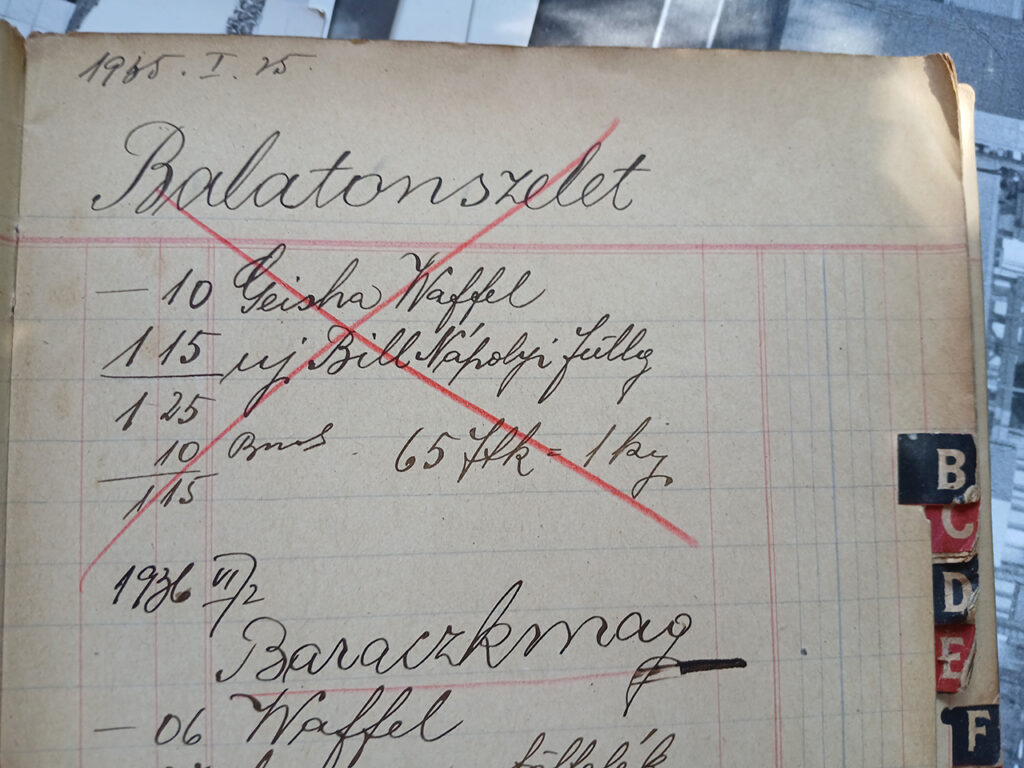 1935. I. 25.
Balatonszelet
— 10 Geisha Waffel
1 15 uj Bill Nápolyi
1 25
10
1 15
65 = 1 kg
1936 VI/2
Baraczkmag
— 06 Waffel
töltelék
B
C
D
E
F